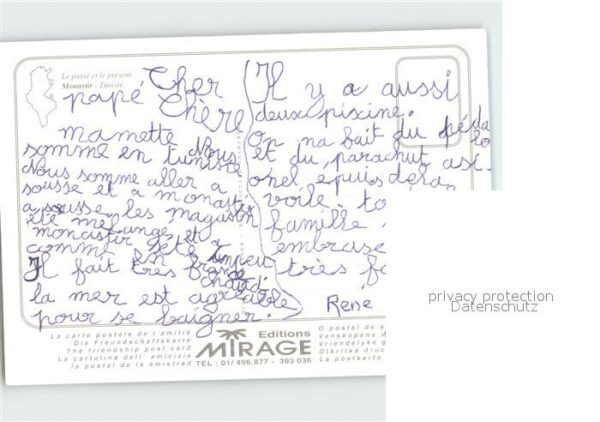 Le passé et le présent.
Monastir - Tunisie
Cher
papé Chère
mamette
Nous
somme en tunisie
Nous somme aller a
sousse et a monastir
a sousse les magasin
été mélange et
monastir sété
comme un peu
en france
Il fait tres chaud
la mer est agréable
pour se baigner.
Il y a aussi
deux piscine.
On na fait du péda
lo
et du parachut asi
onel epuis
voile. to
famille
embrase
très fo
Rene
La carte postale de l'amitié
Die Freundschaftskarte
The friendship post card
La cartolina dell' amicizia
la postal de la amistad
Editions
MIRAGE
TEL : 01/ 496.877 - 393 036
O postal de a
Vanskopens
Vriendelyke g
Otkritke druc
La postkarto
privacy protection
Datenschutz